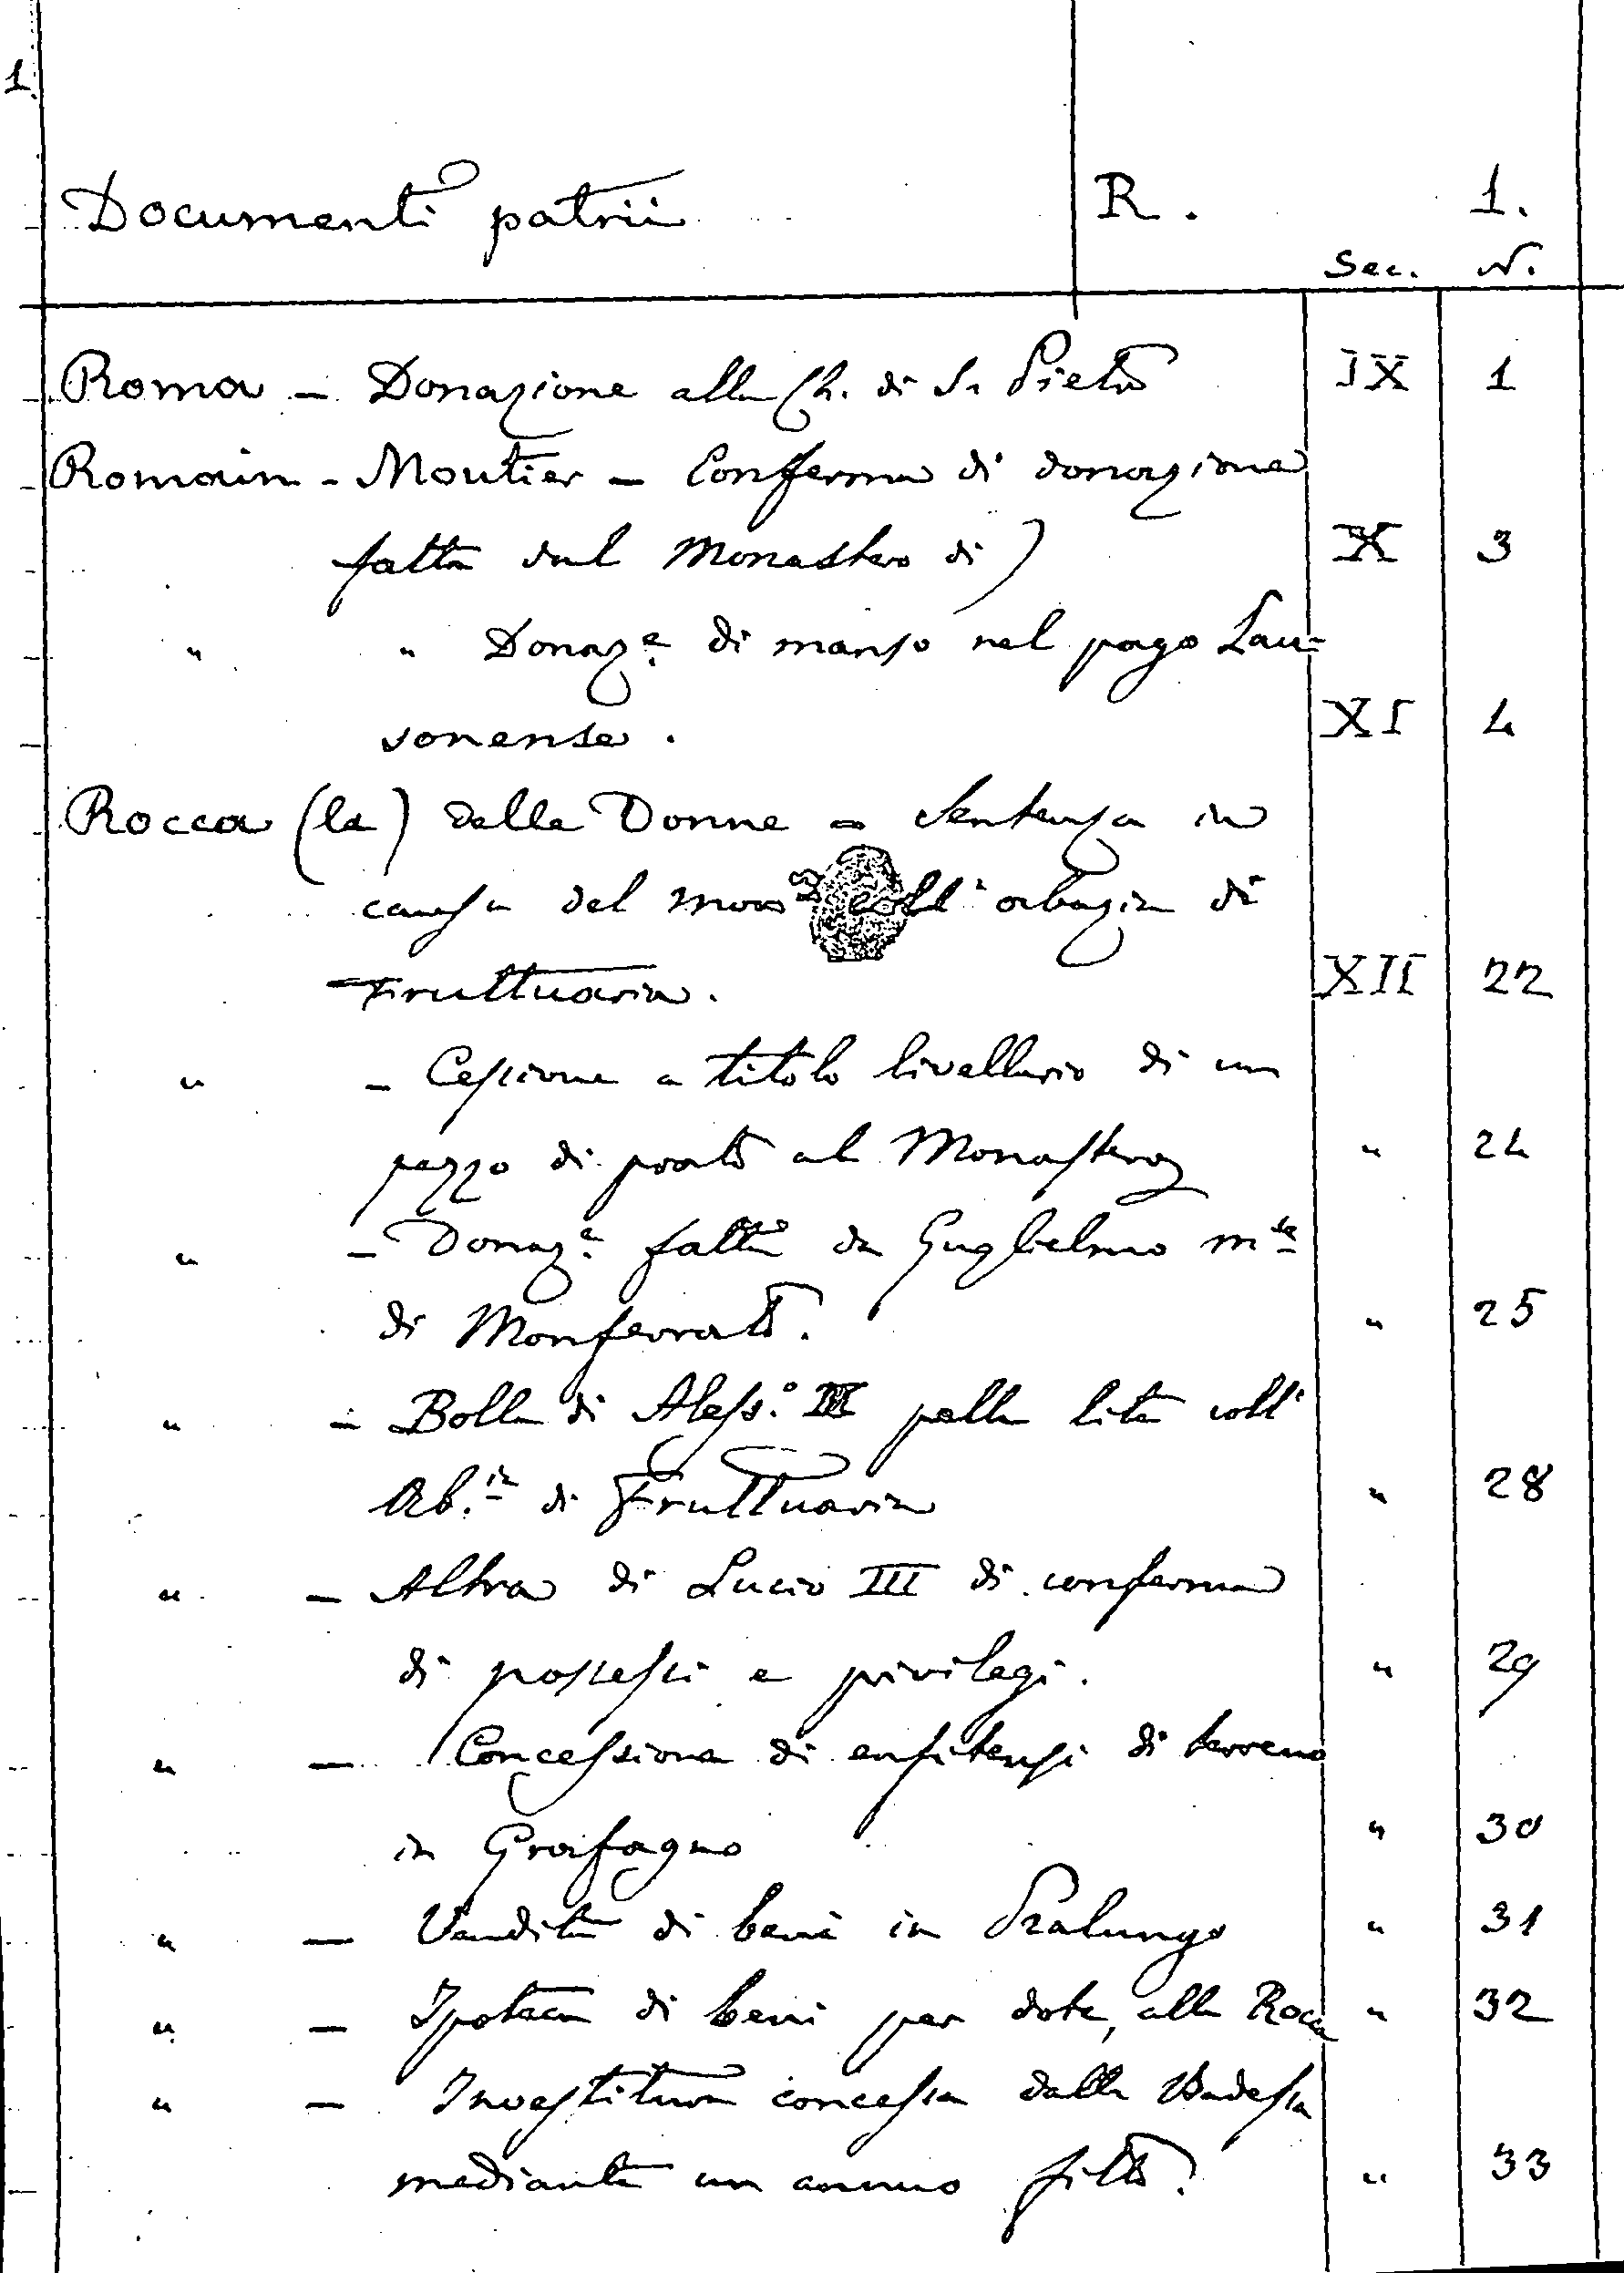 1.
Documenti patrii R. 1.
Sec. N.
Roma - Donazione alla Ch. di S. Pietro IX 1
Romain - Moutier - Conferma di donazione
fatta dal Monastero di) X 3
" " Donaz.e di manso nel pago Lau-
sonense. XI 4
Rocca (la) delle Donne - Sentenza in
causa del coll' abazia di
Fruttuaria. XII 22
" - Cessione a titolo livellario di un
pezzo di prato al Monastero " 24
" - Donaz.e fatta da Guglielmo m.se
di Monferrato. " 25
" - Bolla di Aless.o III nella lite coll'
Ab.ia di Fruttuaria " 28
" - Altra di Lucio III di conferma
di possessi e privilegi. " 29
" - Concessione di enfiteusi di terreno
in Graifagno " 30
" - Vendita di beni in Pralungo " 31
" - Ipoteca di beni per dote, alla Rocca " 32
" - Investitura concessa dalla Badessa
mediante un annuo fitto. " 33